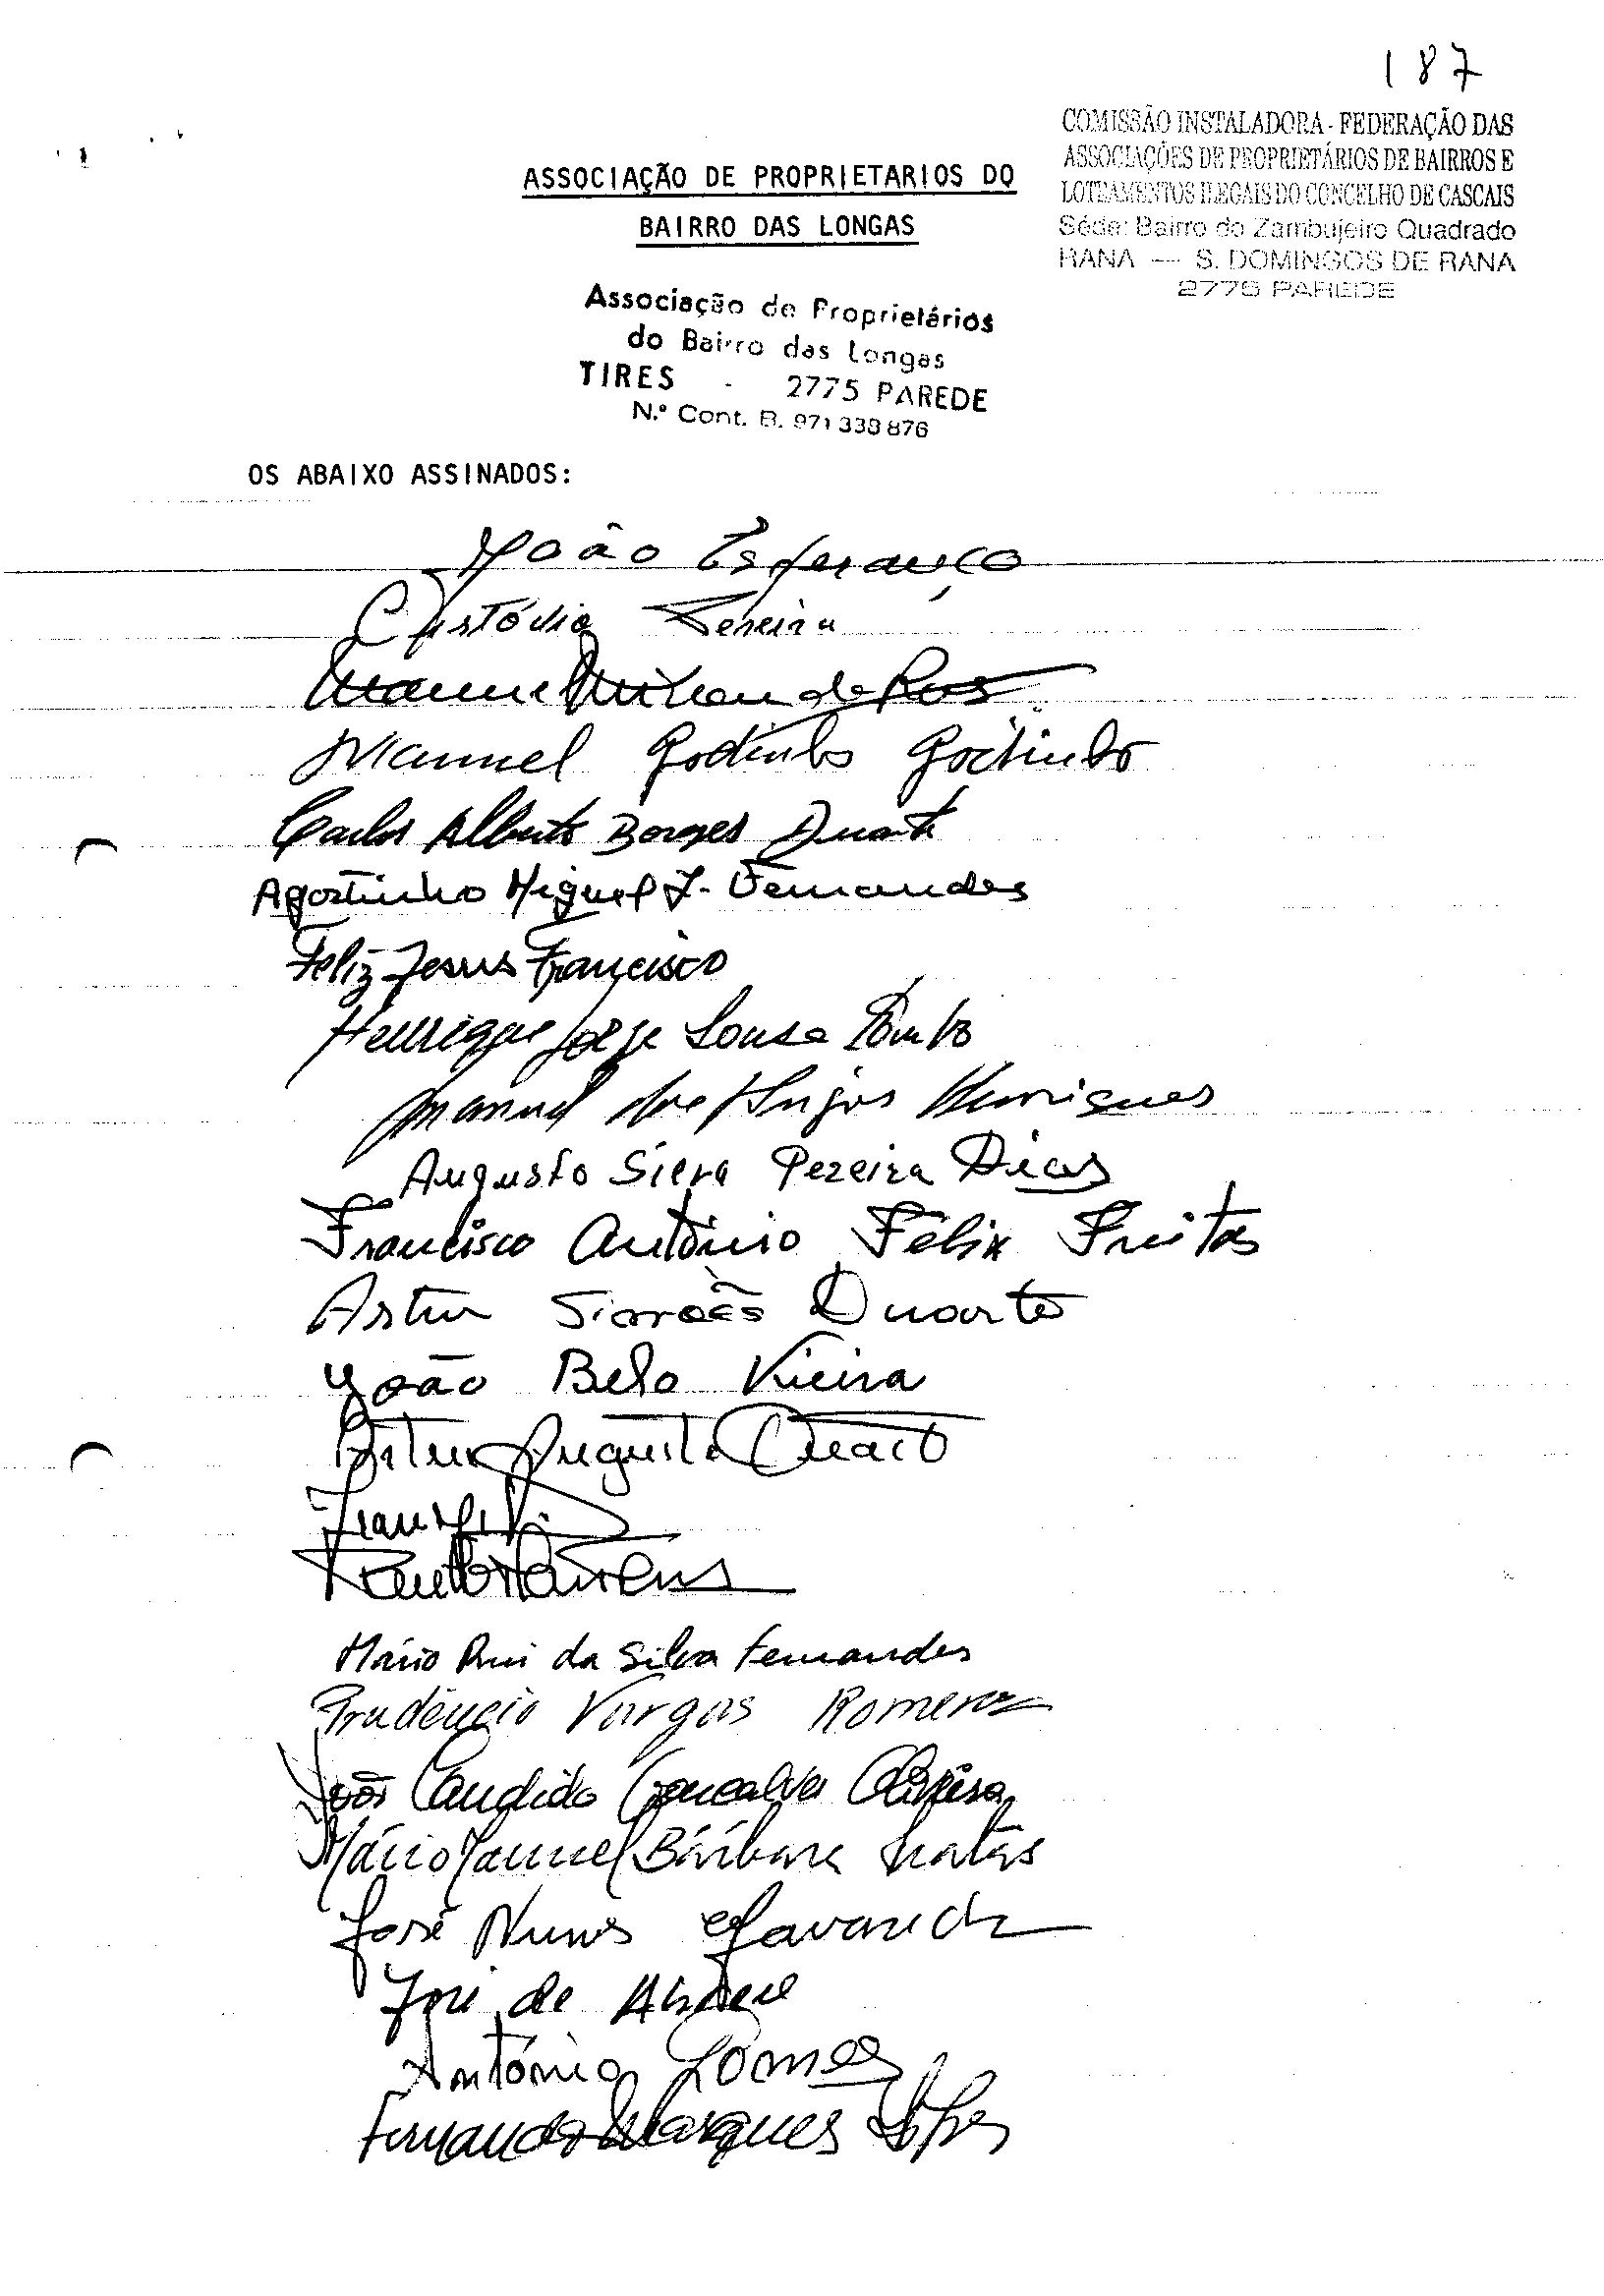 187
COMISSÃO INSTALADORA - FEDERAÇÃO DAS
ASSOCIAÇÕES DE PROPRIETÁRIOS DE BAIRROS E
LOTEAMENTOS ILEGAIS DO CONCELHO DE CASCAIS
Séde: Bairro do Zambujeiro Quadrado
RANA — S. DOMINGOS DE RANA
2775 PAREDE
ASSOCIAÇÃO DE PROPRIETARIOS DO
BAIRRO DAS LONGAS
Associação de Proprietários
do Bairro das Longas
TIRES - 2775 PAREDE
N.º Cont. B. 971 338 876
OS ABAIXO ASSINADOS:
João Esperanço
Custódio Pereira
Manuel de
Manuel Godinho Godinho
Carlos Alberto Borges Duarte
Agostinho Miguel J. Fernandes
Feliz Jesus Francisco
Henrique Jorge Sousa Pombo
Manuel dos Anjos Henriques
Augusto Silva Pereira Dias
Francisco António Félix Freitas
Artur Simões Duarte
João Belo Vieira
Artur Augusto
Mário Rui da Silva Fernandes
Prudêncio Vargas Romeroz
João Candido Gonçalves Oliveira
Mário Manuel Bárbara
José Nunes
José de Abreu
António Gomes
Fernando Marques Lopes